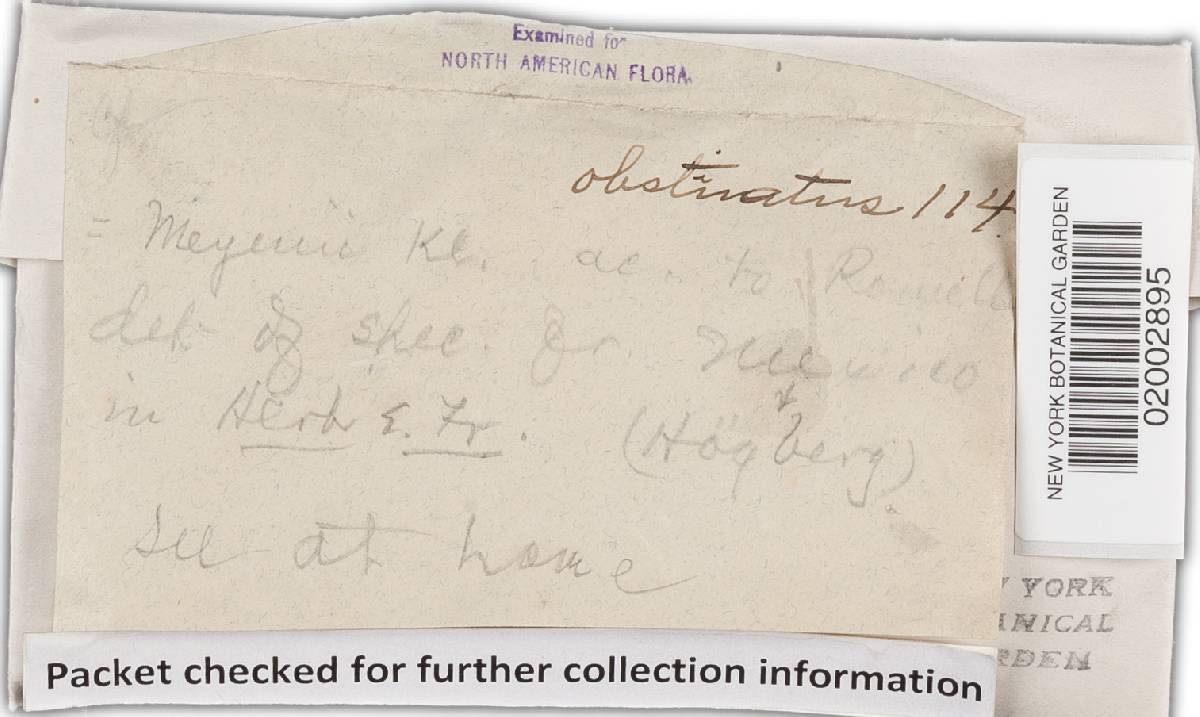 Examined for
NORTH AMERICAN FLORA.
obstinatus 114
= Meyenii Kl. ac. to Romell
det of spec. fr. Mexico
in Herb E. Fr. (Högberg)
see at home
Packet checked for further collection information
NEW YORK BOTANICAL GARDEN
02002895
YORK
NICAL
RDEN